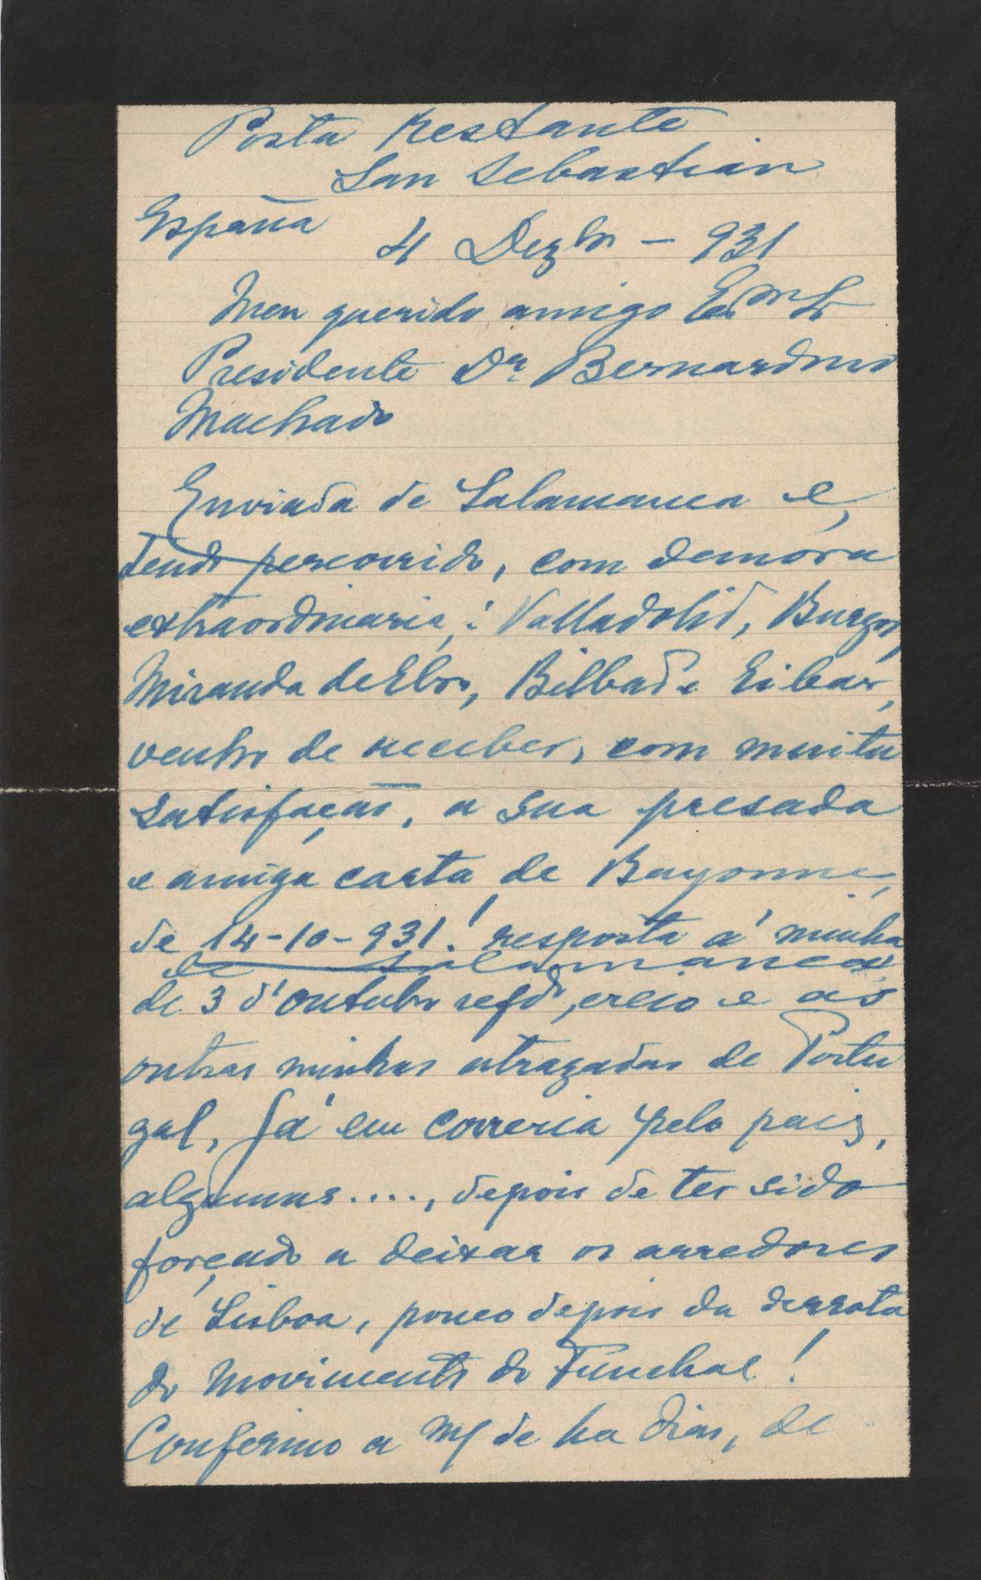 Posta Restante
San Sebastian
España 4 Dezbr - 931
Meu querido amigo Exmo Sr
Presidente Dr Bernardino
Machado
Enviada de Salamanca e,
tendo percorrido, com demora
extraordinaria,: Valladolid, Burgos,
Miranda de Ebro, Bilbad e Eibar,
venho de receber, com muita
satisfação, a sua presada
e amiga carta de Bayonne,
de 14-10-931! resposta á minha
de Salamanca
de 3 d'outubro refdo, creio e ás
outras minhas atrazadas de Portu
gal, Já em correria pelo paiz,
algumas...., depois de ter sido
forçado a deixar os arredores
de Lisboa, pouco depois da derrota
do movimento do Funchal!
Confirmo a m/ de ha dias, de